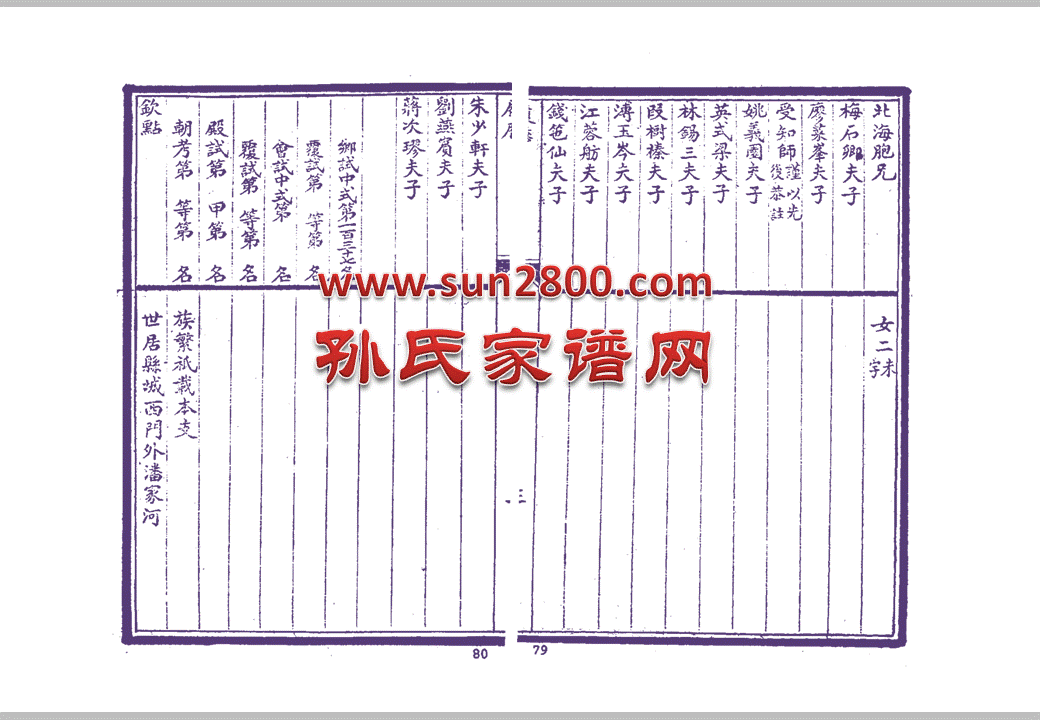 北海胞兄
梅石卿夫子
廖菉峯夫子
受知師謹以先後恭註
姚義圃夫子
英式梁夫子
林錫三夫子
段樹榛夫子
溥玉岑夫子
江蓉舫夫子
錢笆仙夫子
女二未字
三
79
朱少軒夫子
劉燕賓夫子
蔣次璆夫子
鄉試中式第一百三十七名
覆試第 等第 名
會試中式第 名
覆試第 等第 名
殿試第 甲第 名
朝考第 等第 名
欽點
族繁祇載本支
世居縣城西門外潘家河
80
www.sun2800.com
孙氏家谱网